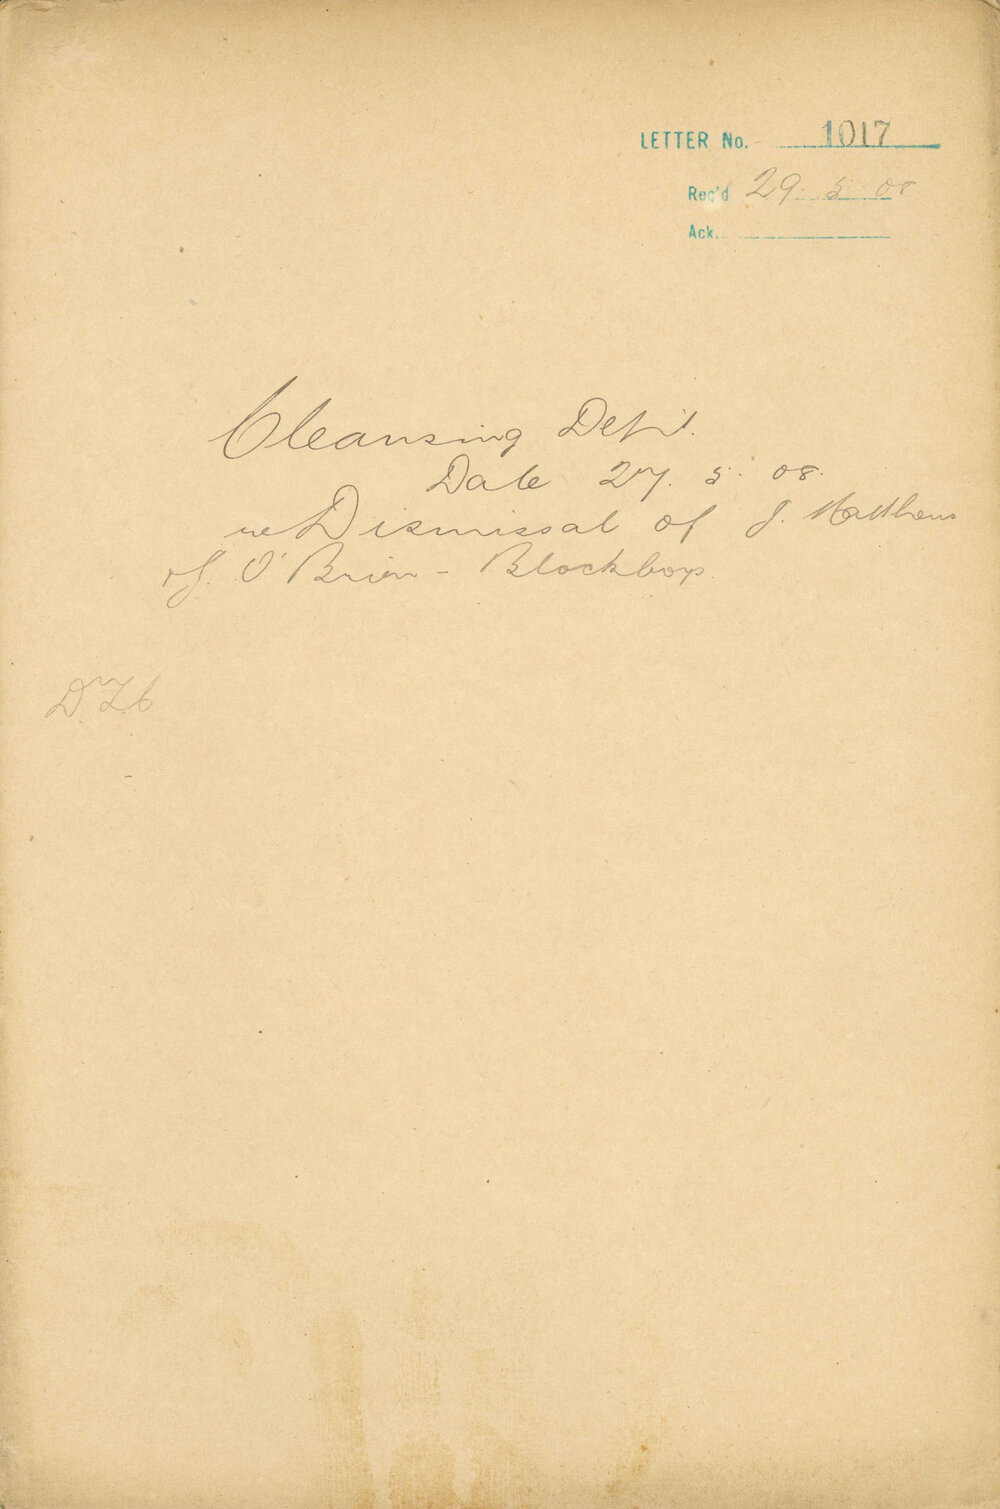 LETTER No. 1017
Rec'd 29. 5. 08
Ack.
Cleansing Dept.
Date 27. 5. 08.
re Dismissal of J. Matthews
& J. O'Brien - Blockboys.